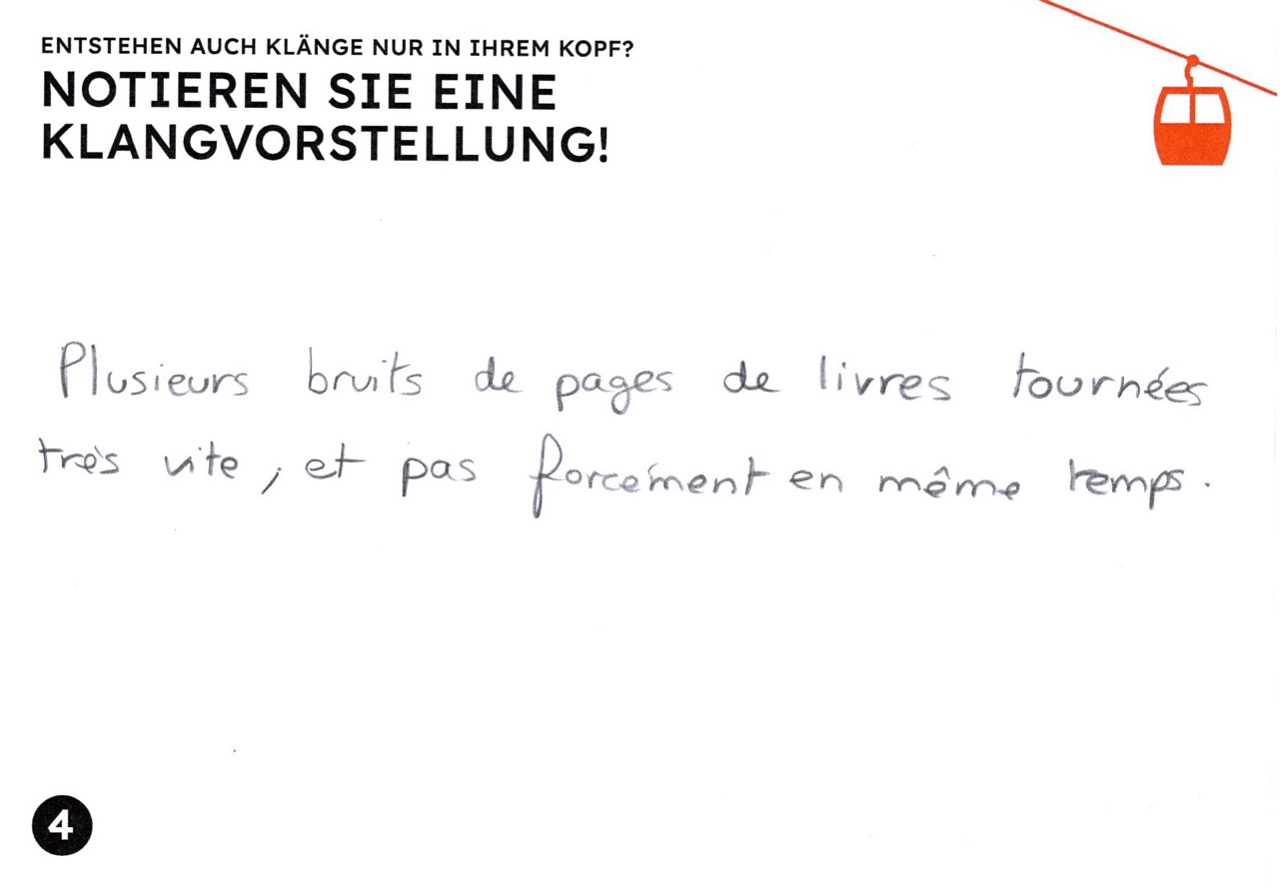 ENTSTEHEN AUCH KLÄNGE NUR IN IHREM KOPF?
NOTIEREN SIE EINE
KLANGVORSTELLUNG!
Plusieurs bruits de pages de livres tournées
très vite, et pas forcément en même temps.
4